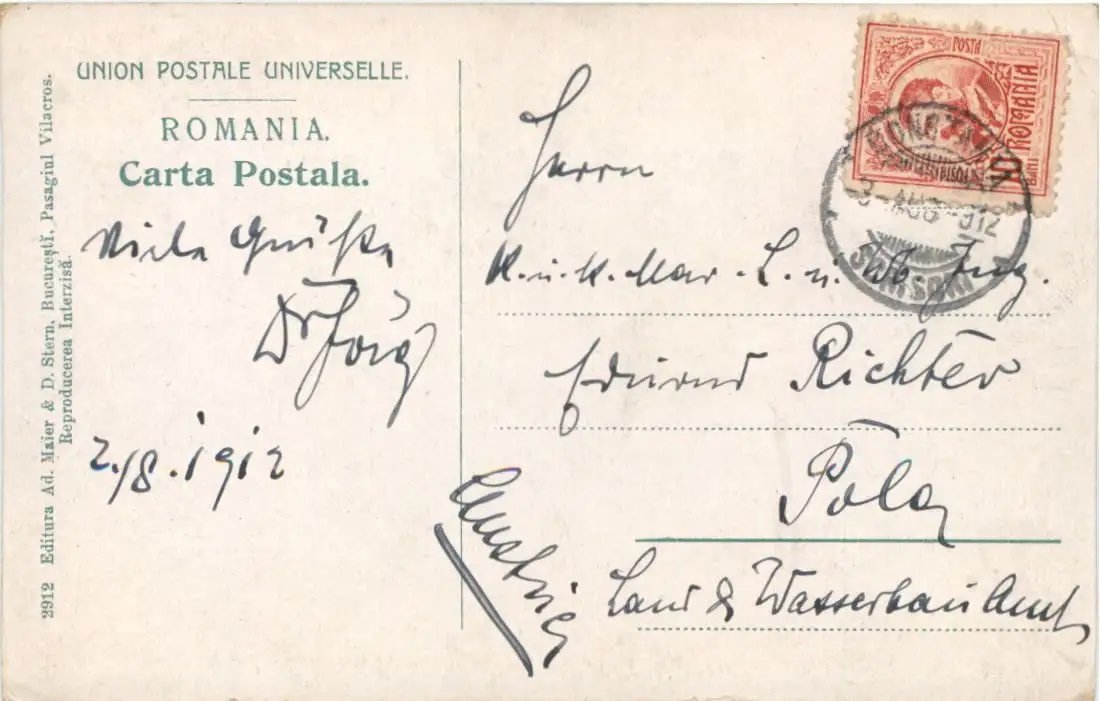 UNION POSTALE UNIVERSELLE.
ROMANIA.
Carta Postala.
Viele Grüße
Dr Jörg
2./8.1912
2912 Editura Ad. Maier & D. Stern, Bucureștĭ, Pasagiul Vilacros.
Reproducerea Interzisă.
POSTA
ROMANIA
10
3-AUG 912
Herrn
K. u. K. Mar. L. u. Wb. Ing.
Eduard Richter
Pola
Land & Wasserbau Amt
Austria